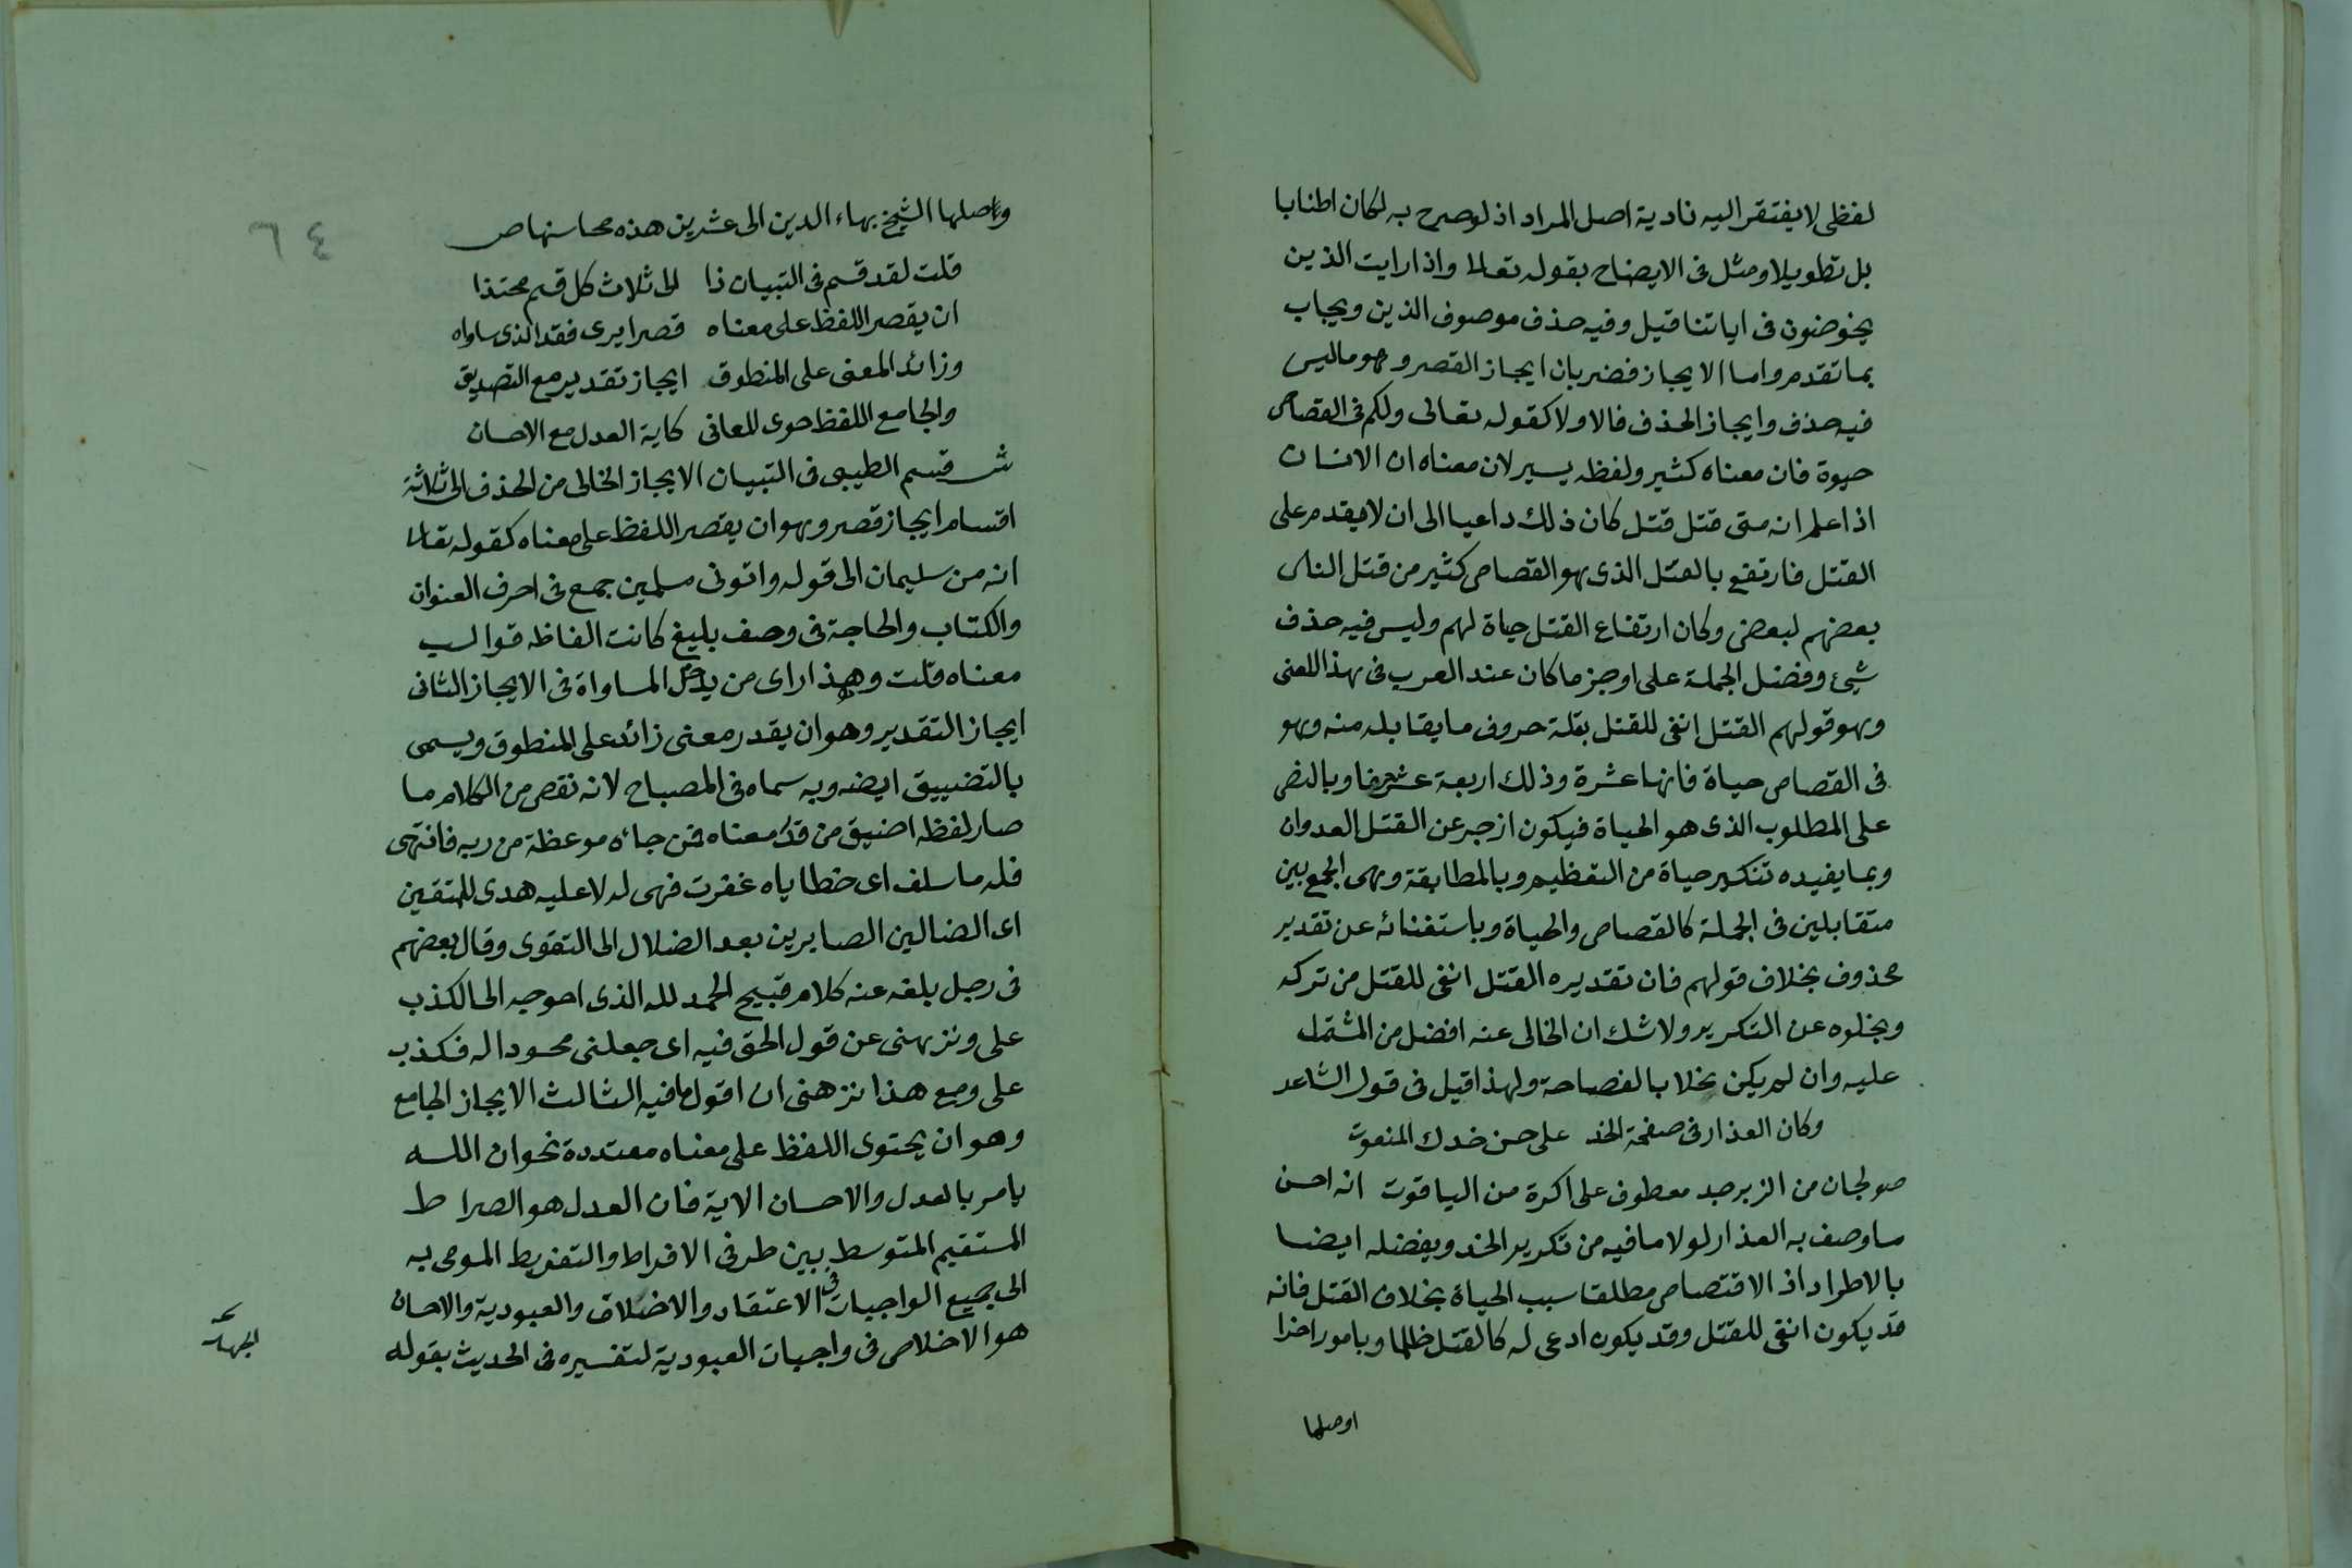 لفظى لا يفتقر اليه تادية اصل المراد اذ لو صرح به لكان اطنابا
بل تطويلا ومثل فى الايضاح بقوله تعالى واذا رايت الذين
يخوضون فى اياتنا قيل وفيه حذف موصوف الذين ويجاب
بما تقدم واما الايجاز فضربان ايجاز القصر وهو ما ليس
فيه حذف وايجاز الحذف فالاولا كقوله تعالى ولكم فى القصاص
حيوة فان معناه كثير ولفظه يسير لان معناه ان الانسان
اذا علم انه متى قتل قتل كان ذلك داعيا الى ان لا يقدم على
القتل فارتفع بالقتل الذى هو القصاص كثير من قتل الناس
بعضهم لبعض وكان ارتفاع القتل حياة لهم وليس فيه حذف
شيئ وفضل الجملة على اوجز ما كان عند العرب فى هذا المعنى
وهو قولهم القتل انفى للقتل بقلة حروف ما يقابله منه وهو
فى القصاص حياة فانها عشرة وذلك اربعة عشر حرفا وبالنص
على المطلوب الذى هو الحياة فيكون ازجر عن القتل العدوان
وبما يفيده تنكير حياة من التعظيم وبالمطابقة وهى الجمع بين
متقابلين فى الجملة كالقصاص والحياة وباستغنائه عن تقدير
محذوف بخلاف قولهم فان تقديره القتل انفى للقتل من تركه
وبخلوه عن التكرير ولا شك ان الخالى عنه افضل من المشتمل
عليه وان لم يكن مخلا بالفصاحة ولهذا قيل فى قول الشاعر
وكان العذار فى صفحة الخد على حسن خدك المنعوت
صولجان من الزبرجد معطوف على اكرة من الياقوت انه احسن
ما وصف به العذار لولا ما فيه من تكرير الخد ويفضله ايضا
بالاطراد اذ الاقتصاص مطلقا سبب الحياة بخلاف القتل فانه
قد يكون انفى للقتل وقد يكون ادعى له كالقتل ظلما وبامور اخرا
اوصلها
٦٤
واصلها الشيخ بهاء الدين الى عشرين هذه محاسنها ص
قلت لقد قسم فى التبيان ذا الى ثلاث كل قسم محتذا
ان يقصر اللفظ على معناه قصرا يرى فقد الذى ساواه
وزائد المعنى على المنطوق ايجاز تقدير مع التصديق
والجامع اللفظ حوى للعانى كاية العدل مع الاحسان
ش قسم الطيبى فى التبيان الايجاز الخالى من الحذف الى ثلاثة
اقسام ايجاز قصر وهو ان يقصر اللفظ على معناه كقوله تعالى
انه من سليمان الى قوله واتونى مسلمين جمع فى احرف العنوان
والكتاب والحاجة فى وصف بليغ كانت الفاظه قوالب
معناه قلت وهذا راى من يدخل المساواة فى الايجاز الثانى
ايجاز التقدير وهو ان يقدر معنى زائد على المنطوق ويسمى
بالتضييق ايضه وبه سماه فى المصباح لانه نقص من الكلام ما
صار لفظه اضيق من قدر معناه فمن جاءه موعظة من ربه فانتهى
فله ما سلف اى خطاياه غفرت فهى له لا عليه هدى للمتقين
اى الضالين الصايرين بعد الضلال الى التقوى وقال بعضهم
فى رجل بلغه عنه كلام قبيح الحمد لله الذى احوجه الى الكذب
على ونزهنى عن قول الحق فيه اى جعلنى محسودا له فكذب
على ومع هذا نزهنى ان اقول ما فيه الثالث الايجاز الجامع
وهو ان يحتوى اللفظ على معناه معتددة نحو ان الله
يامر بالعدل والاحسان الاية فان العدل هو الصراط
المستقيم المتوسط بين طرفى الافراط والتفريط المومى به
الى جميع الواجبات فى الاعتقاد والاخلاق والعبودية والاحسان
هو الاخلاص فى واجبات العبودية لتفسيره فى الحديث بقوله